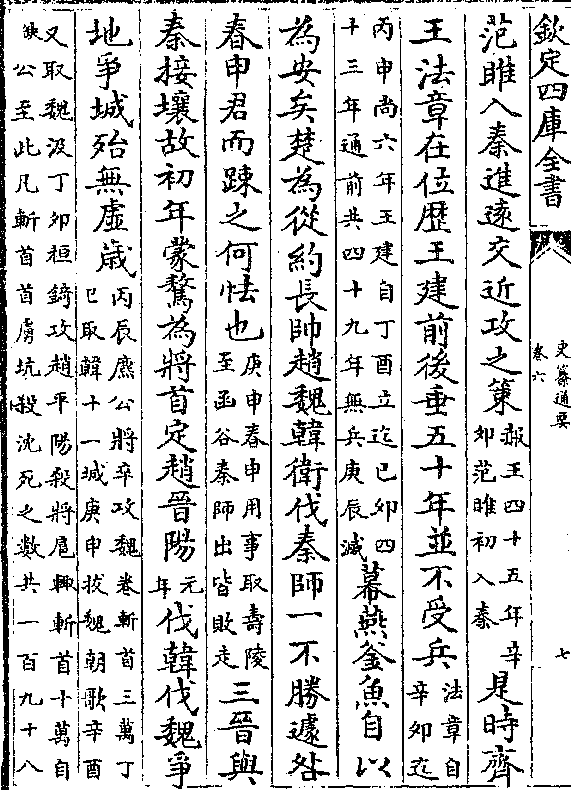 欽定四庫全書
史纂通要
卷六
七
范睢入秦進遠交近攻之策赧王四十五年辛卯范睢初入秦是時齊
王法章在位歴王建前後垂五十年並不受兵法章自辛卯迄
丙申尚六年王建自丁酉立迄己卯四十三年通前共四十九年無兵庚辰滅幕燕釜魚自以
為安矣楚為從約長帥趙魏韓衛伐秦師一不勝遽咎
春申君而踈之何怯也庚申春申用事取壽陵至函谷秦師出皆敗走三晉與
秦接壤故初年蒙驁為將首定趙晉陽元年伐韓伐魏爭
地爭城殆無虛歳丙辰麃公將卒攻魏卷斬首三萬丁巳取韓十一城庚申拔魏朝歌辛酉
又取魏汲丁卯桓錡攻趙平陽殺將扈輒斬首十萬自公至此凡斬首首虜坑殺沈死之數共一百九十八